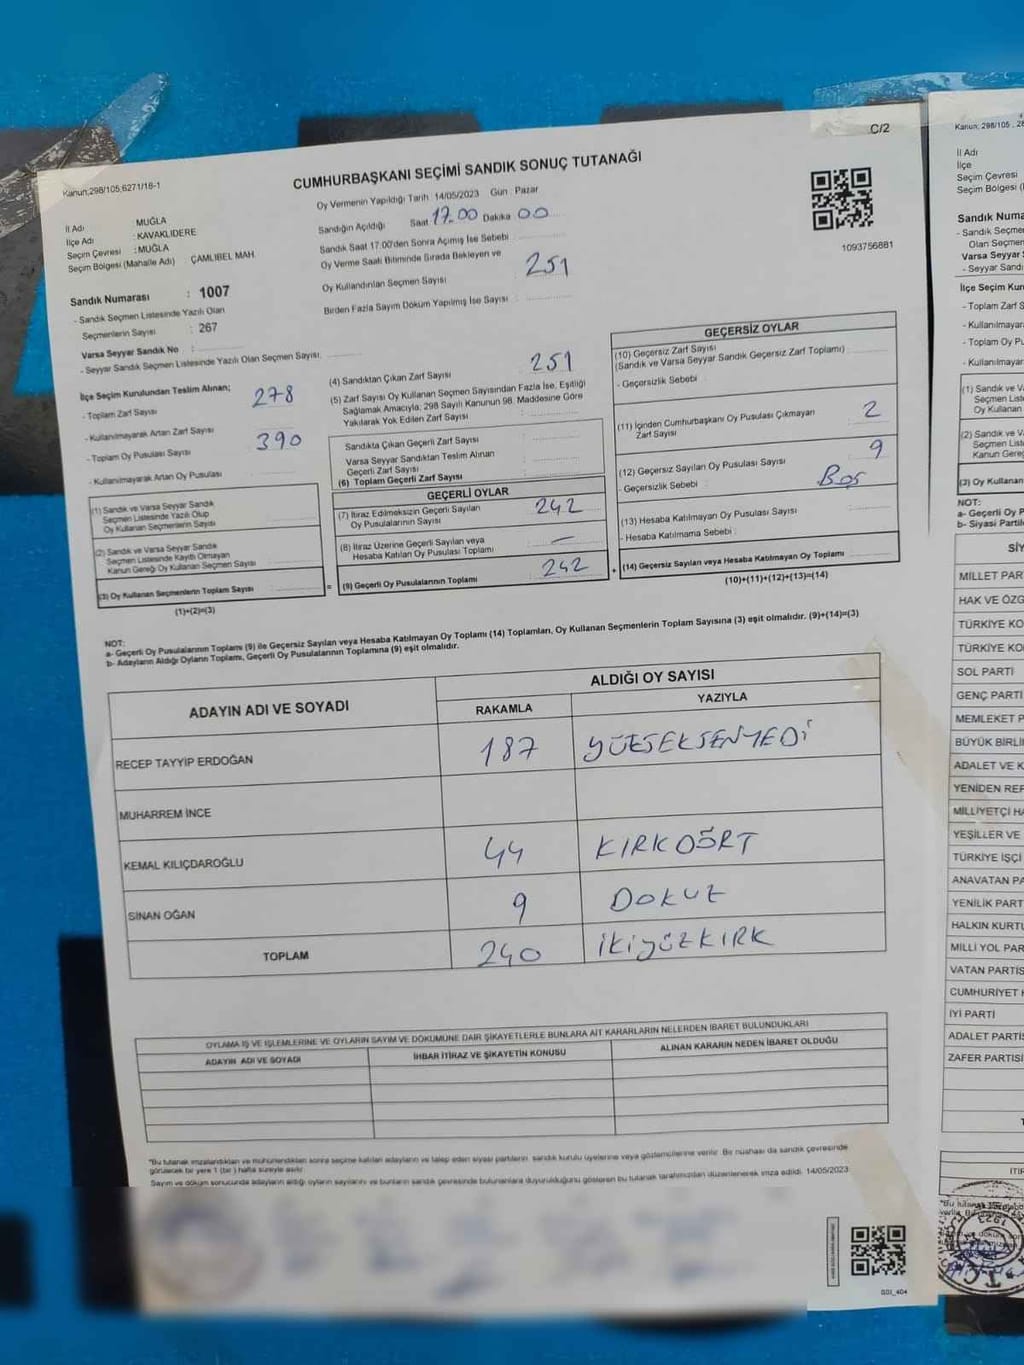 C/2
Kanun;298/105;6271/16-1
CUMHURBAŞKANI SEÇİMİ SANDIK SONUÇ TUTANAĞI
Oy Vermenin Yapıldığı Tarih 14/05/2023 Gün : Pazar
İl Adı : MUĞLA
İlçe Adı : KAVAKLIDERE
Seçim Çevresi : MUĞLA
Seçim Bölgesi (Mahalle Adı) ÇAMLIBEL MAH.
Sandık Numarası : 1007
- Sandık Seçmen Listesinde Yazılı Olan
Seçmenlerin Sayısı : 267
Varsa Seyyar Sandık No :
- Seyyar Sandık Seçmen Listesinde Yazılı Olan Seçmen Sayısı.
Sandığın Açıldığı Saat 17.00 Dakika 00
Sandık Saat 17.00'den Sonra Açılmış İse Sebebi
Oy Verme Saati Bitiminde Sırada Bekleyen ve
Oy Kullandırılan Seçmen Sayısı 251
Birden Fazla Sayım Döküm Yapılmış İse Sayısı
1093756881
İlçe Seçim Kurulundan Teslim Alınan;
- Toplam Zarf Sayısı 278
- Kullanılmayarak Artan Zarf Sayısı
- Toplam Oy Pusulası Sayısı 390
- Kullanılmayarak Artan Oy Pusulası
(1) Sandık ve Varsa Seyyar Sandık
Seçmen Listesinde Yazılı Olup
Oy Kullanan Seçmenlerin Sayısı
(2) Sandık ve Varsa Seyyar Sandık
Seçmen Listesinde Kayıtlı Olmayan
Kanun Gereği Oy Kullanan Seçmen Sayısı
(3) Oy Kullanan Seçmenlerin Toplam Sayısı
(1)+(2)=(3)
(4) Sandıktan Çıkan Zarf Sayısı 251
(5) Zarf Sayısı Oy Kullanan Seçmen Sayısından Fazla İse, Eşitliği
Sağlamak Amacıyla; 298 Sayılı Kanunun 98. Maddesine Göre
Yakılarak Yok Edilen Zarf Sayısı
Sandıkta Çıkan Geçerli Zarf Sayısı
Varsa Seyyar Sandıktan Teslim Alınan
Geçerli Zarf Sayısı
(6) Toplam Geçerli Zarf Sayısı
GEÇERLİ OYLAR
(7) İtiraz Edilmeksizin Geçerli Sayılan
Oy Pusulasının Sayısı 242
(8) İtiraz Üzerine Geçerli Sayılan veya
Hesaba Katılan Oy Pusulası Toplamı —
= (9) Geçerli Oy Pusulalarının Toplamı 242
GEÇERSİZ OYLAR
(10) Geçersiz Zarf Sayısı
(Sandık ve Varsa Seyyar Sandık Geçersiz Zarf Toplamı)
- Geçersizlik Sebebi
(11) İçinden Cumhurbaşkanı Oy Pusulası Çıkmayan
Zarf Sayısı 2
(12) Geçersiz Sayılan Oy Pusulası Sayısı 9
- Geçersizlik Sebebi Boş
(13) Hesaba Katılmayan Oy Pusulası Sayısı
- Hesaba Katılmama Sebebi
+ (14) Geçersiz Sayılan veya Hesaba Katılmayan Oy Toplamı
(10)+(11)+(12)+(13)=(14)
NOT:
a- Geçerli Oy Pusulalarının Toplamı (9) ile Geçersiz Sayılan veya Hesaba Katılmayan Oy Toplamı (14) Toplamları, Oy Kullanan Seçmenlerin Toplam Sayısına (3) eşit olmalıdır. (9)+(14)=(3)
b- Adayların Aldığı Oyların Toplamı, Geçerli Oy Pusulalarının Toplamına (9) eşit olmalıdır.
ADAYIN ADI VE SOYADI
ALDIĞI OY SAYISI
RAKAMLA YAZIYLA
RECEP TAYYİP ERDOĞAN 187 YÜZSEKSENYEDİ
MUHARREM İNCE
KEMAL KILIÇDAROĞLU 44 KIRKDÖRT
SİNAN OĞAN 9 DOKUZ
TOPLAM 240 İKİYÜZKIRK
OYLAMA İŞ VE İŞLEMLERİNE VE OYLARIN SAYIM VE DÖKÜMÜNE DAİR ŞİKAYETLERLE BUNLARA AİT KARARLARIN NELERDEN İBARET BULUNDUKLARI
ADAYIN ADI VE SOYADI İHBAR İTİRAZ VE ŞİKAYETİN KONUSU ALINAN KARARIN NEDEN İBARET OLDUĞU
*Bu tutanak imzalandıktan ve mühürlendikten sonra seçime katılan adayların ve talep eden siyasi partilerin sandık kurulu üyelerine veya gözlemcilerine verilir. Bir nüshası da sandık çevresinde
görülecek bir yere 1 (bir) hafta süreyle asılır.
Sayım ve döküm sonucunda adayların aldığı oyların sayılarını ve bunların sandık çevresinde bulunanlara duyurulduğunu gösteren bu tutanak tarafımızdan düzenlenerek imza edildi. 14/05/2023
Kanun; 298/105
İl Adı
İlçe
Seçim Çevresi
Seçim Bölgesi
Sandık
- Sandık
Olan
Varsa Seyyar
- Seyyar
İlçe Seçim
- Toplam
- Toplam
(1) Sandık ve
Oy Kullanan
(2) Sandık ve
Kanun
(3) Oy Kullanan
NOT:
a- Geçerli Oy
b- Siyasi
MİLLET
HAK VE
TÜRKİYE
TÜRKİYE
SOL PARTİ
GENÇ PARTİ
MEMLEKET
BÜYÜK
ADALET VE
YENİDEN
MİLLİYETÇİ
YEŞİLLER VE
TÜRKİYE İŞÇİ
ANAVATAN
YENİLİK
HALKIN
MİLLİ YOL
VATAN
CUMHURİYET
İYİ PARTİ
ADALET
ZAFER PARTİSİ